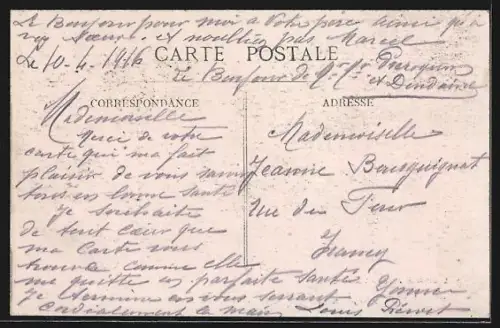 Le Bonjour pour moi a Votre père ainsi qu'à
vos Sœurs. et n'oubliez pas Marcel
Le 10-4-1916
CARTE POSTALE
Le Bonjour de Mr Me
et Dendaine
CORRESPONDANCE
ADRESSE
Mademoiselle
Merci de votre
carte qui ma fait
plaisir de vous savoir
tous en bonne santé
Je souhaite
de tout cœur que
ma Carte vous
trouve comme elle
me quitte en parfaite santé
Je termine en vous serrant
cordialement la main Louis
Mademoiselle
Jeanne
Rue du Four
Yonne